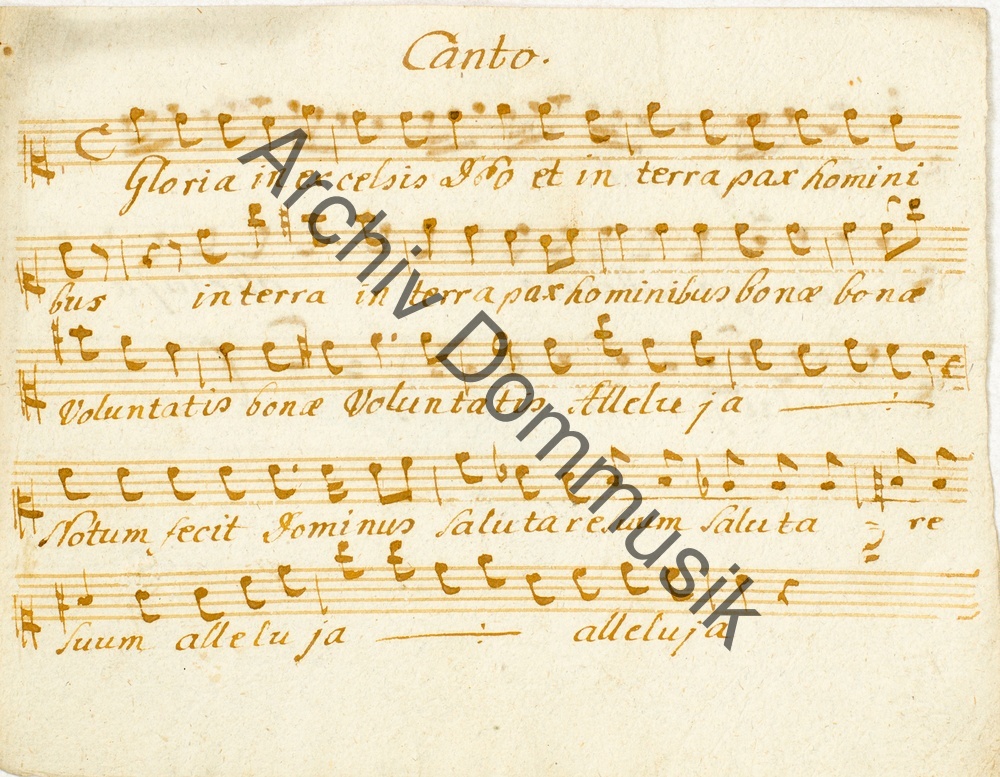 Canto.
Gloria in excelsis Deo et in terra pax homini
bus in terra in terra pax hominibus bonæ bonæ
Voluntatis bonæ Voluntatis Allelu ja
Notum fecit Dominus salutare suum saluta re
suum allelu ja alleluja
Archiv Dommusik